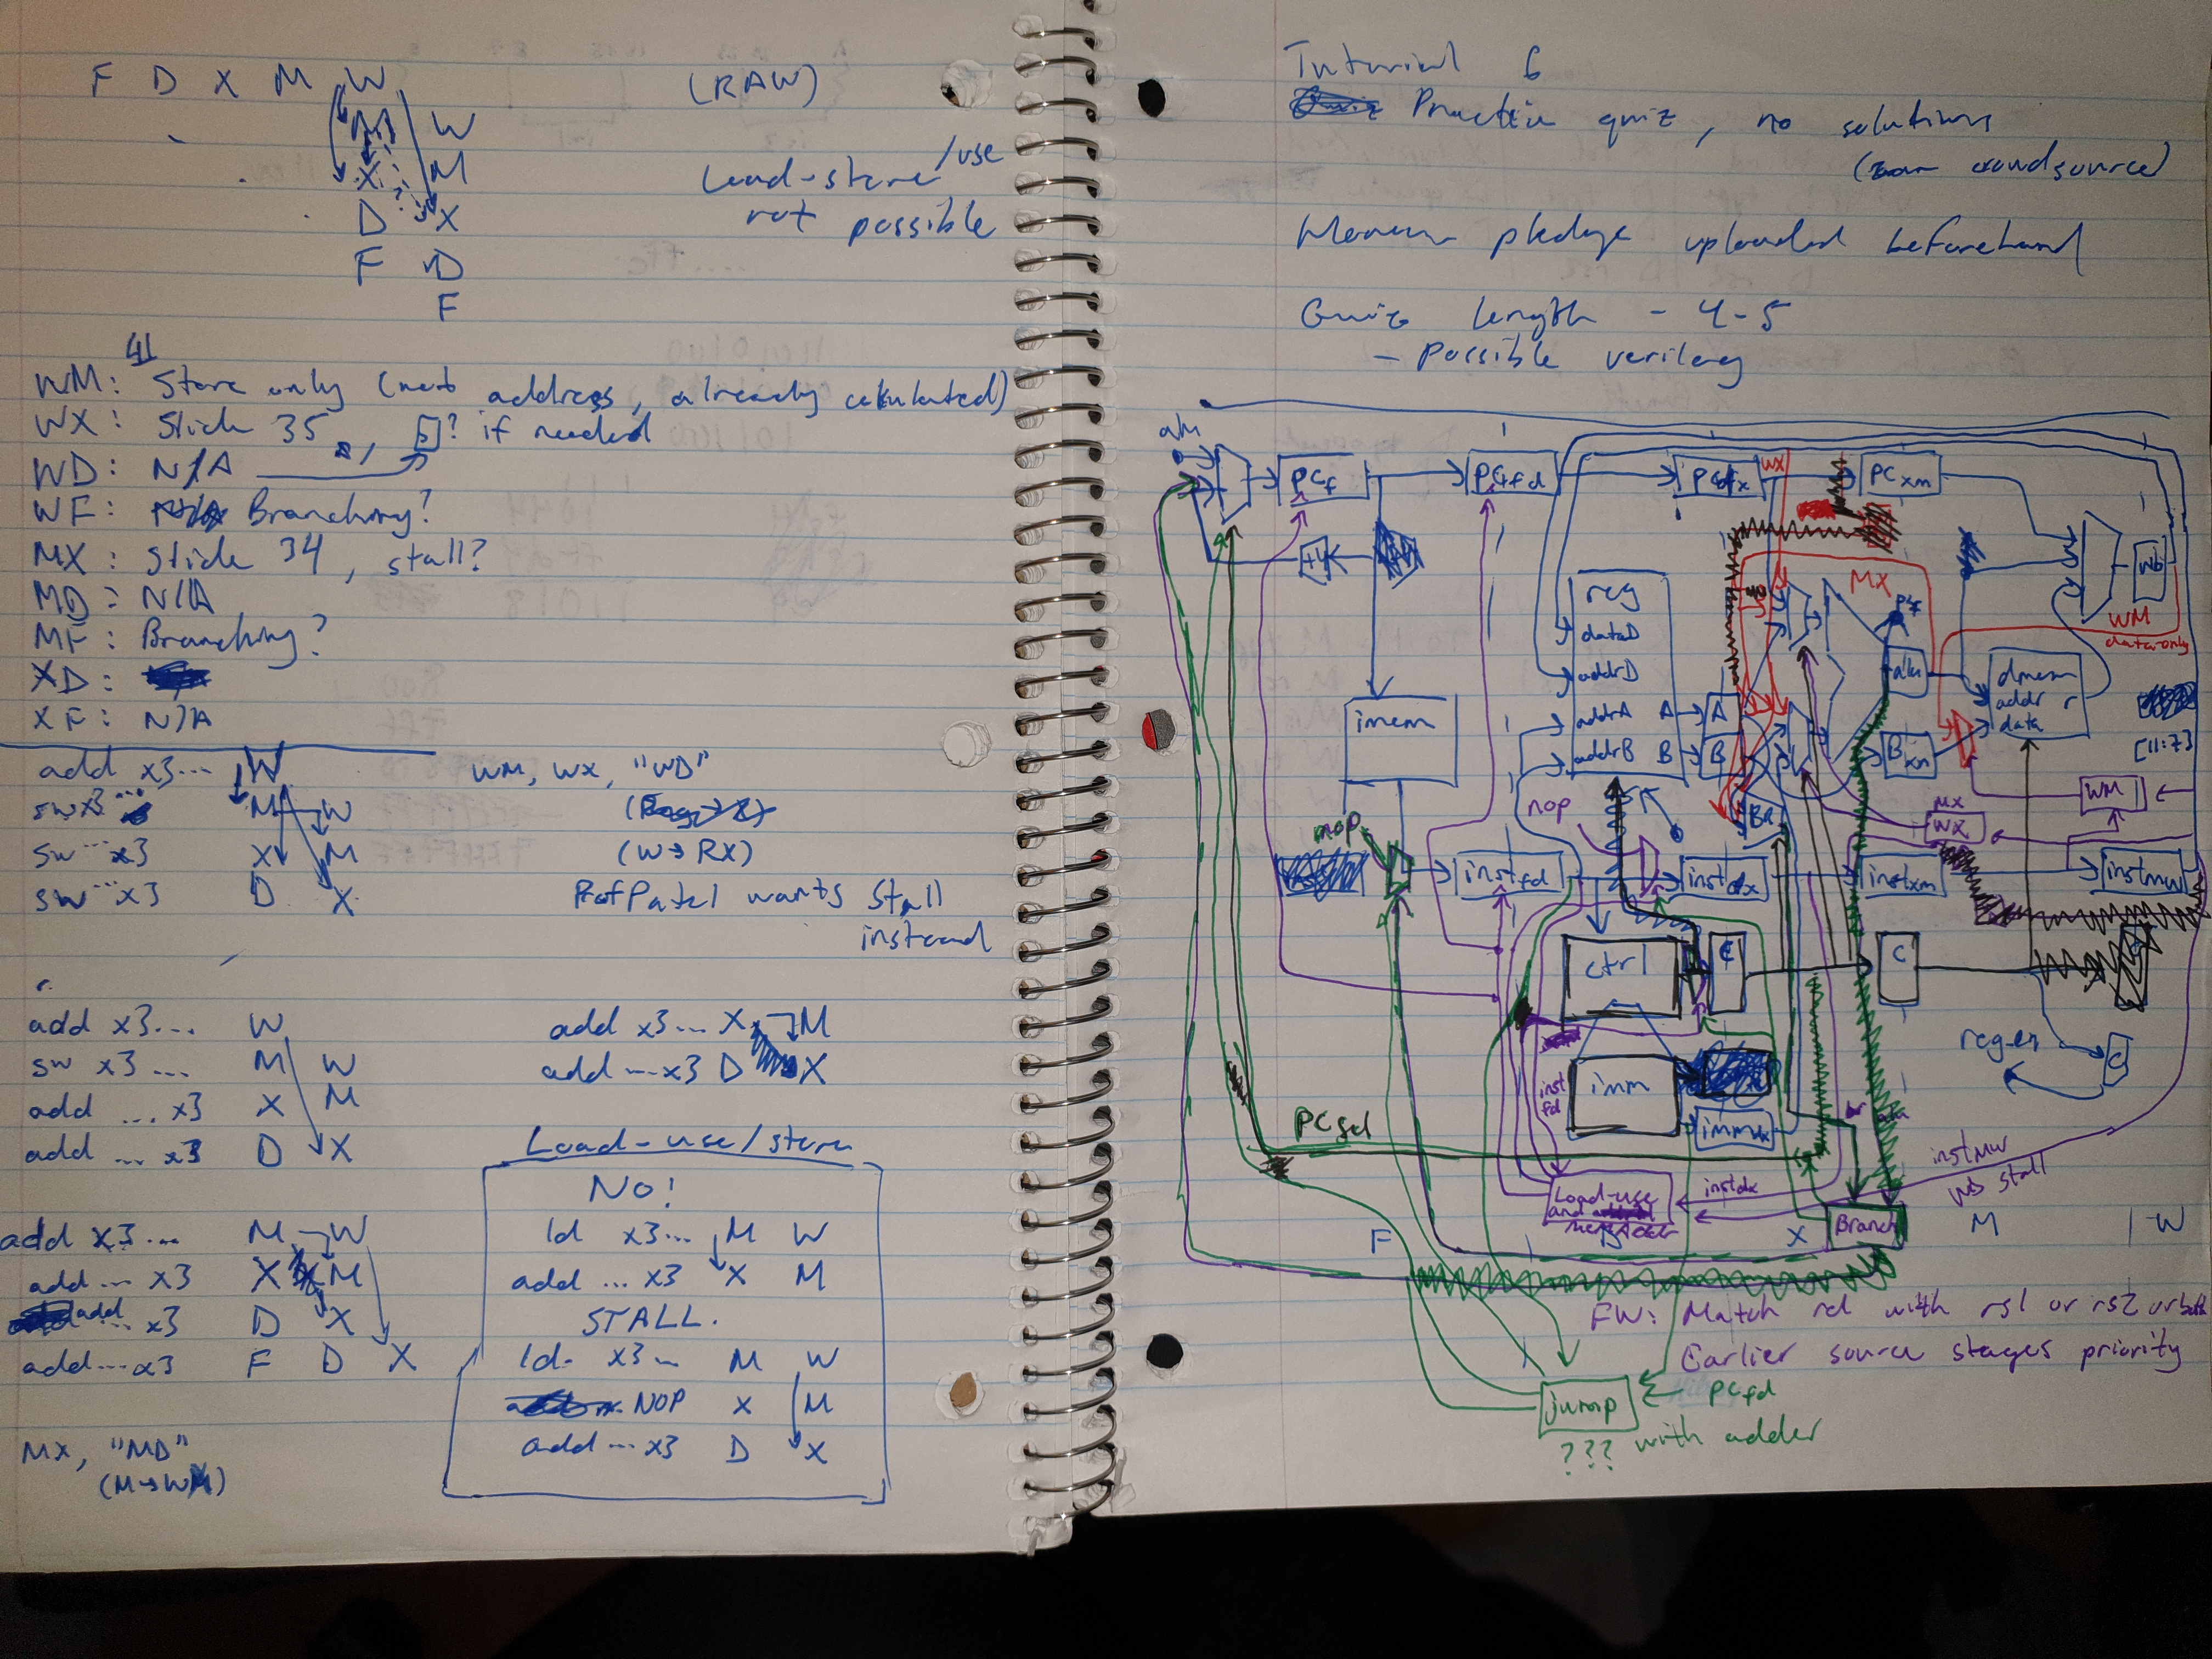 F D X M W
(RAW)
M W
X M
D X
F D
F
Load-store/use
not possible
41
WM: Store only (not address, already calculated)
WX: Slide 35, ? if needed
WD: N/A
WF: Branching?
MX: Slide 34, stall?
MD: N/A
MF: Branching?
XD:
XF: N/A
add x3... W
sw x3... M W
sw ... x3 X M
sw ... x3 D X
WM, WX, "WD"
(W→RX)
Prof Patel wants stall
instead
add x3... W
sw x3 ... M W
add ... x3 X M
add ... x3 D X
add x3... X M
add ... x3 D X
add x3... M W
add ... x3 X M
add ... x3 D X
add ... x3 F D X
MX, "MD"
Load-use/store
NO!
ld x3... M W
add ... x3 X M
STALL.
ld x3... M W
NOP X M
add ... x3 D X
Tutorial 6
Practice quiz, no solutions
(crowdsource)
pledge uploaded beforehand
Quiz length - 4-5
- possible verilog
alu
PCf
PCfd
PCdx
WX
PCxm
+4
MX
wb
WM
data only
reg
dataD
addrD
addrA A
addrB B
A
B
imem
alu
Bxm
dmem
addr r
data
[11:7]
WM
MX
WX
nop
nop
instfd
instdx
instxm
instmw
ctrl
C
C
C
regen
imm
immdx
inst
fd
PCsel
Load-use
and
instdx
instMW
WD stall
Branch
F
X
M
W
FW: Match rd with rs1 or rs2 or both
Earlier source stages priority
jump
PCfd
??? with adder